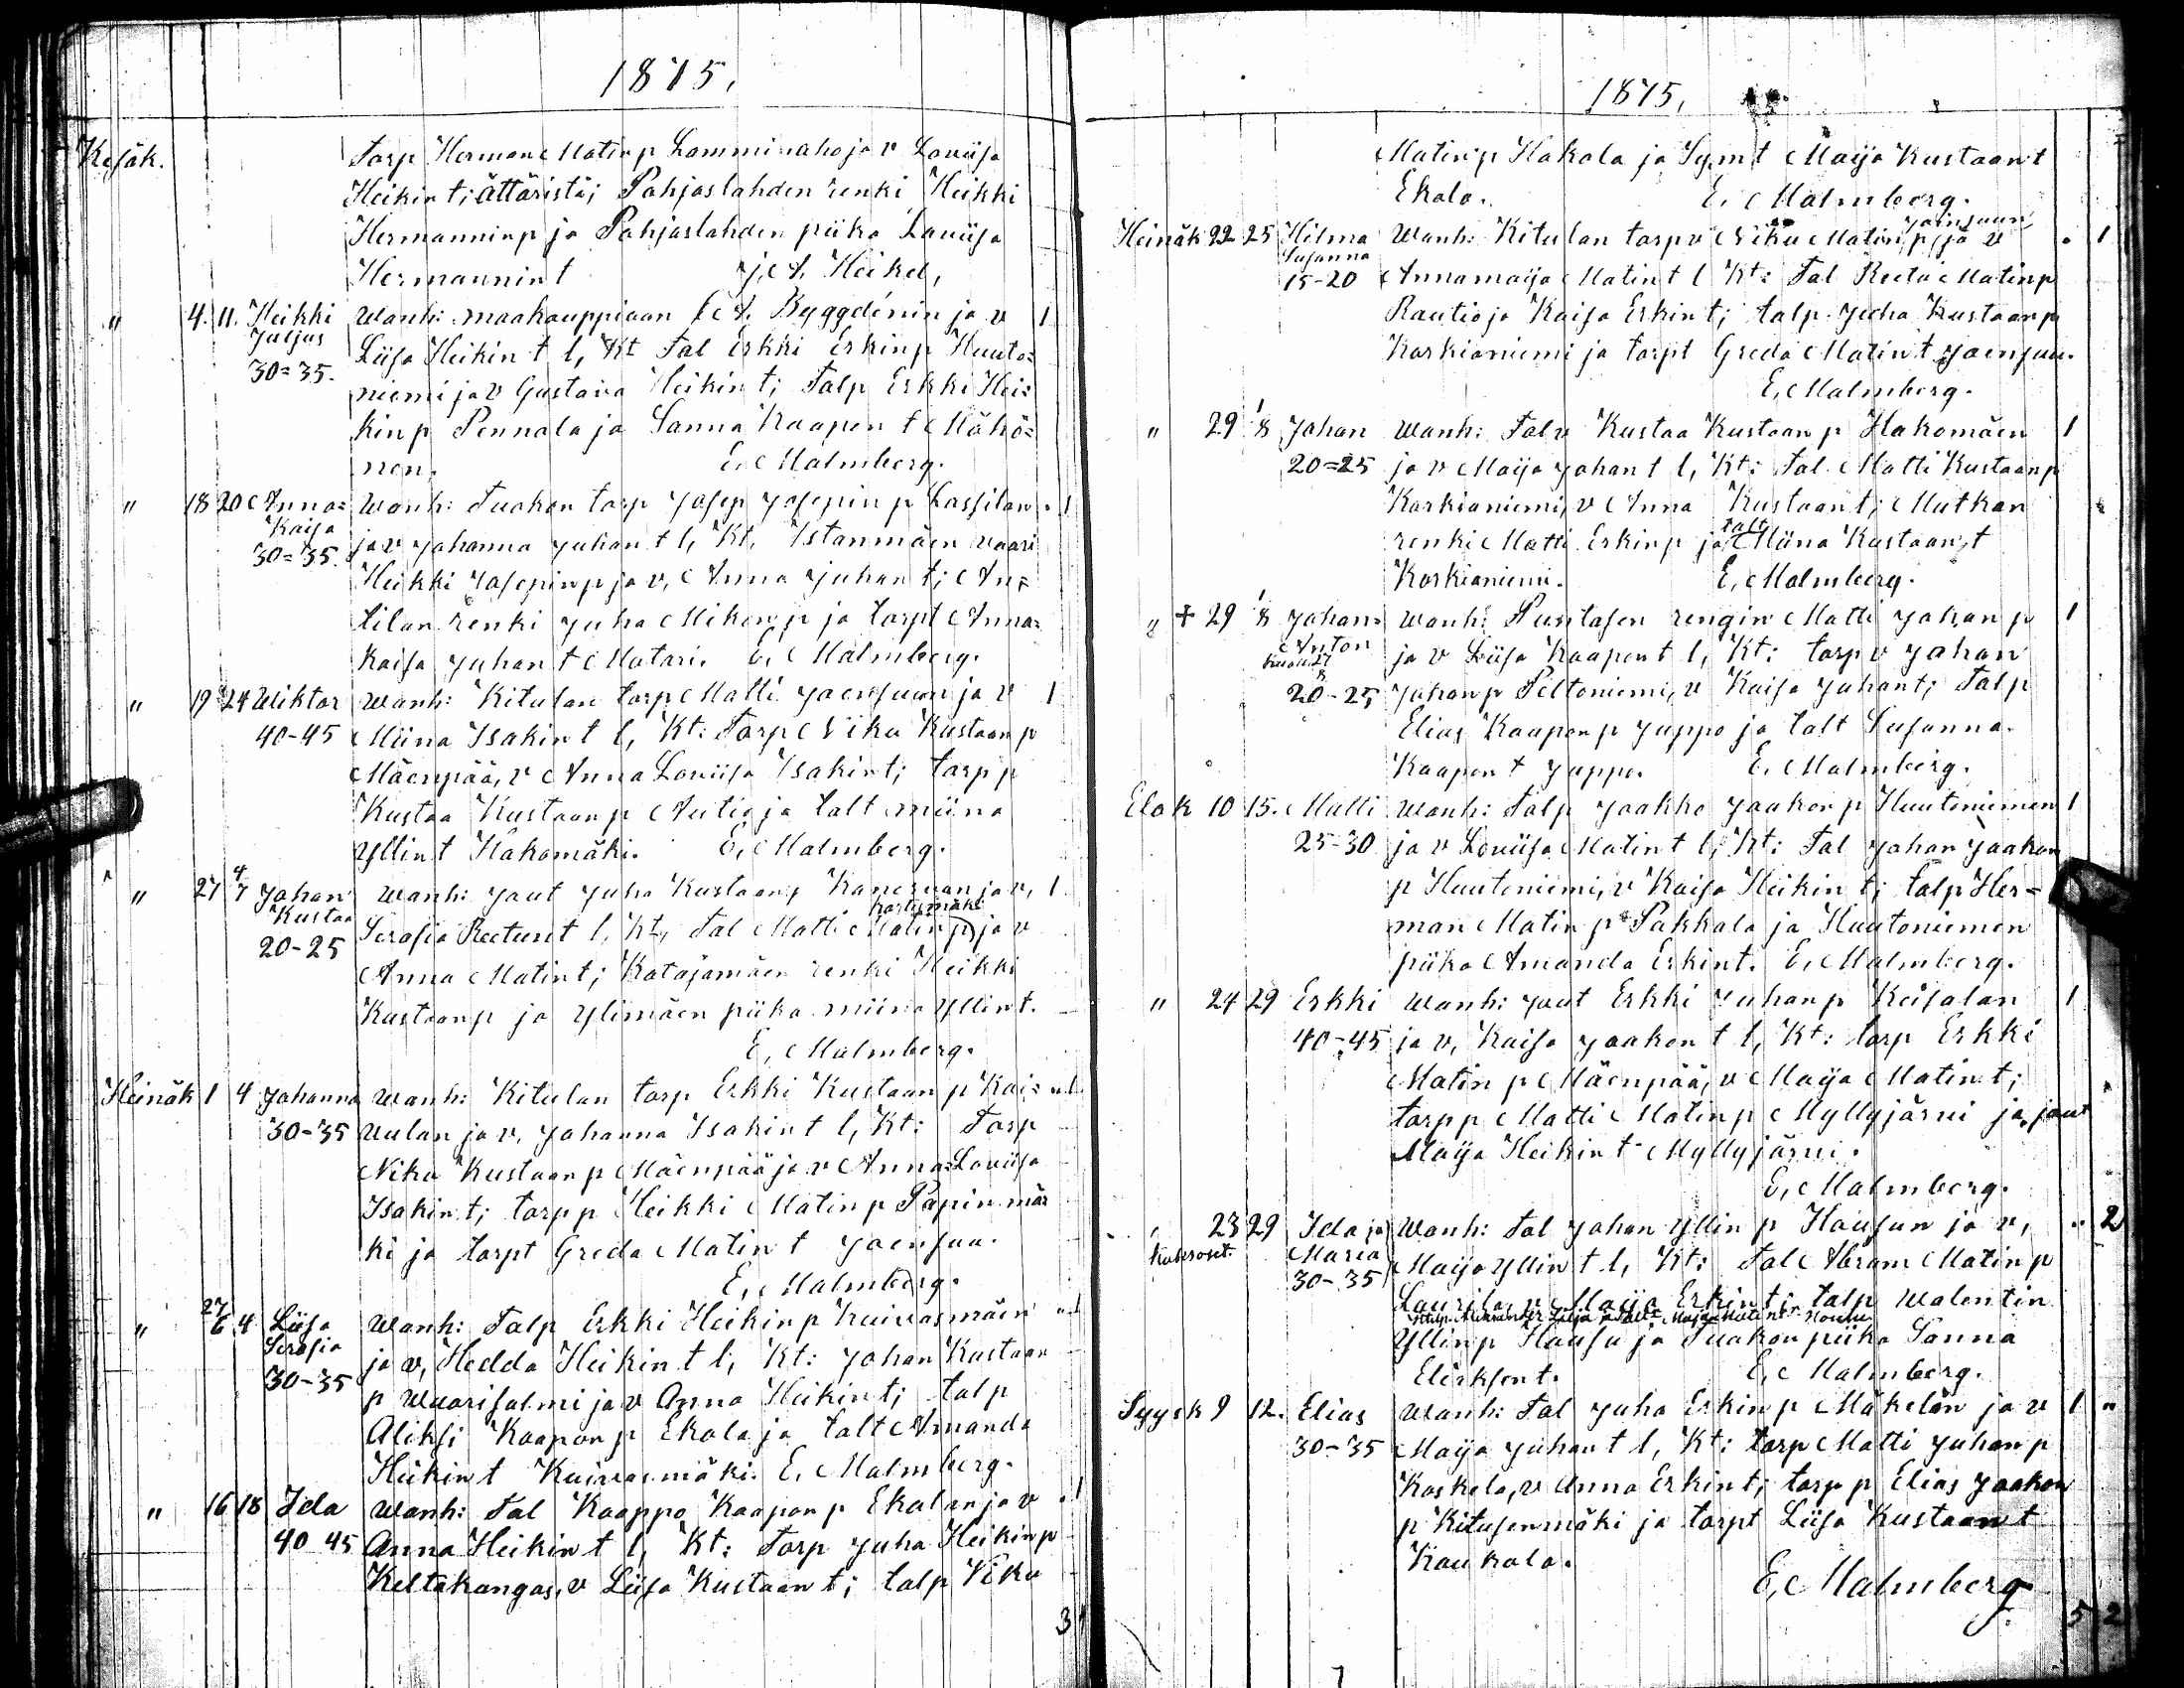 1875,
Kesäk. Torp Herman Matinp Lamminaho ja v Loviisa
Heikint; Ättäristä; Pohjaslahden renki Heikki
Hermanninp ja Pohjaslahden piika Loviisa
Hermannint J. A. Heikel,
" 4. 11. Heikki Wanh: maakauppiaan A. Byggdénin ja v 1
Juljus Liisa Heikin t l, Kt Tal Erkki Erkinp Huuto=
30=35. niemi ja v Gustava Heikint; Talp Erkki Hei=
kinp Pennala ja Sanna Kaapon t Mähö=
nen. E. Malmberg.
" 18 20 Anna= Wanh: Tuakan torp Josep Josepin p Lassilan . 1
Kaisa ja v Johanna Juhan t l, Kt, Istanmäen vaari
30=35. Heikki Josepinp ja v, Anna Juhan t; An=
tilan renki Juha Mikonp ja torpt Anna=
kaisa Juhan t Matari. E, Malmberg.
" 19 24 Wiktor Wanh: Kitulan torp Matti Joensuun ja v 1
40-45 Miina Isakin t l, Kt: Torp Niku Kustaan p
Mäenpää, v Anna Loviisa Isakint; torp p
Kustaa Kustaan p Autio ja talt miina
Yllint Hakomäki. E, Malmberg.
" 27 4/7 Johan Wanh: Jaut Juha Kustaanp Kanervan ja v, 1
Kustaa Serafia Reetunt l, Kt, Tal Matti Matinp ja v
20-25 Anna Matint; Katajamäen renki Heikki
Kustaanp ja Ylimäen piika miina Yllint.
E, Malmberg.
Heinäk 1 4 Johanna Wanh: Kitulan torp Erkki Kustaan p Kai= " 1
30-35 vulan ja v, Johanna Isakint l, Kt: Torp
Niku Kustaan p Mäenpää ja v Anna=Loviisa
Isakint; torp p Heikki Matin p Papinmä
ki ja torpt Greda Matin t Joensuu.
E, Malmberg.
" 27/6 4 Liisa Wanh: Talp Erkki Heikin p Kuivasmäen " 1
Serafia ja v, Hedda Heikin t l, Kt: Johan Kustaan
30-35 p Waarisalmi ja v Anna Heikint; talp
Aliksi Kaapon p Ekola ja talt Amanda
Heikint Kuivasmäki. E, Malmberg.
" 16 18 Ida Wanh: Tal Kaappo Kaapon p Ekolan ja v . 1
40 45 Anna Heikin t l, Kt: Torp Juha Heikinp
Keltakangas, v Liisa Kustaan t; talp Viku
3
1875,
Matinp Hakola ja Symt Maija Kustaant
Ekola. E, Malmberg.
Joensuun
Heinäk 22 25 Hilma Wanh: Kitulan torp v Niku Matin p ja v . 1
Susanna
15-20 Annamaija Matint l Kt: Tal Reeta Matinp
Rautio ja Kaisa Erkint; talp Juha Kustaanp
Korkianiemi ja torpt Greda Matint Joensuu.
E, Malmberg.
" 29 1/8 Johan Wanh: Talv Kustaa Kustaan p Hakomäen 1
20=25 ja v Maija Johan t l, Kt: Tal Matti Kustaanp
Korkianiemi, v Anna Kustaant; Mutkan
talt
renki Matti Erkinp ja Miina Kustaan t
Korkianiemi. E, Malmberg.
" + 29 1/8 Johan= Wanh: Puntasen rengin Matti Johan p 1
Anton ja v Liisa Kaapont l, Kt: torp v Johan
20-25 Johanp Peltoniemi, v Kaisa Juhant; Talp
Elias Kaapon p Juppo ja talt Susanna
Kaapon t Juppo. E, Malmberg.
Elok 10 15. Matti Wanh: Talp Jaakko Jaakon p Huutoniemen 1
25-30 ja v Loviisa Matint l, Kt: Tal Johan Jaakon
p Huutoniemi, v Kaisa Heikin t; talp Her=
man Matin p Pakkala ja Huutoniemen
piika Amanda Erkint. E, Malmberg.
" 24 29 Erkki Wanh: Jaut Erkki Juhan p Keisalan 1
40-45 ja v, Kaisa Jaakon t l, Kt: torp Erkki
Matin p Mäenpää, v Maija Matin t;
torpp Matti Matin p Myllyjärvi ja jaut
Maija Heikin t Myllyjärvi.
E, Malmberg.
23 29 Ida ja Wanh: Tal Johan Yllin p Hausun ja v, " 2
Kaksoset Maria Maija Yllin t l, Kt: Tal Abram Matin p
30-35 Laurila, v Maija Erkint; talp Walentin
Yllinp Hausu ja Tuakan piika Sanna
Elieksont. E, Malmberg.
Syysk 9 12. Elias Wanh: Tal Juha Erkin p Mäkelän ja v 1 "
30-35 Maija Juhan t l, Kt: torp Matti Juhan p
Koskela, v Anna Erkint; torp p Elias Jaakon
p Kitusenmäki ja torpt Liisa Kustaant
Koukola.
E, Malmberg
5 2